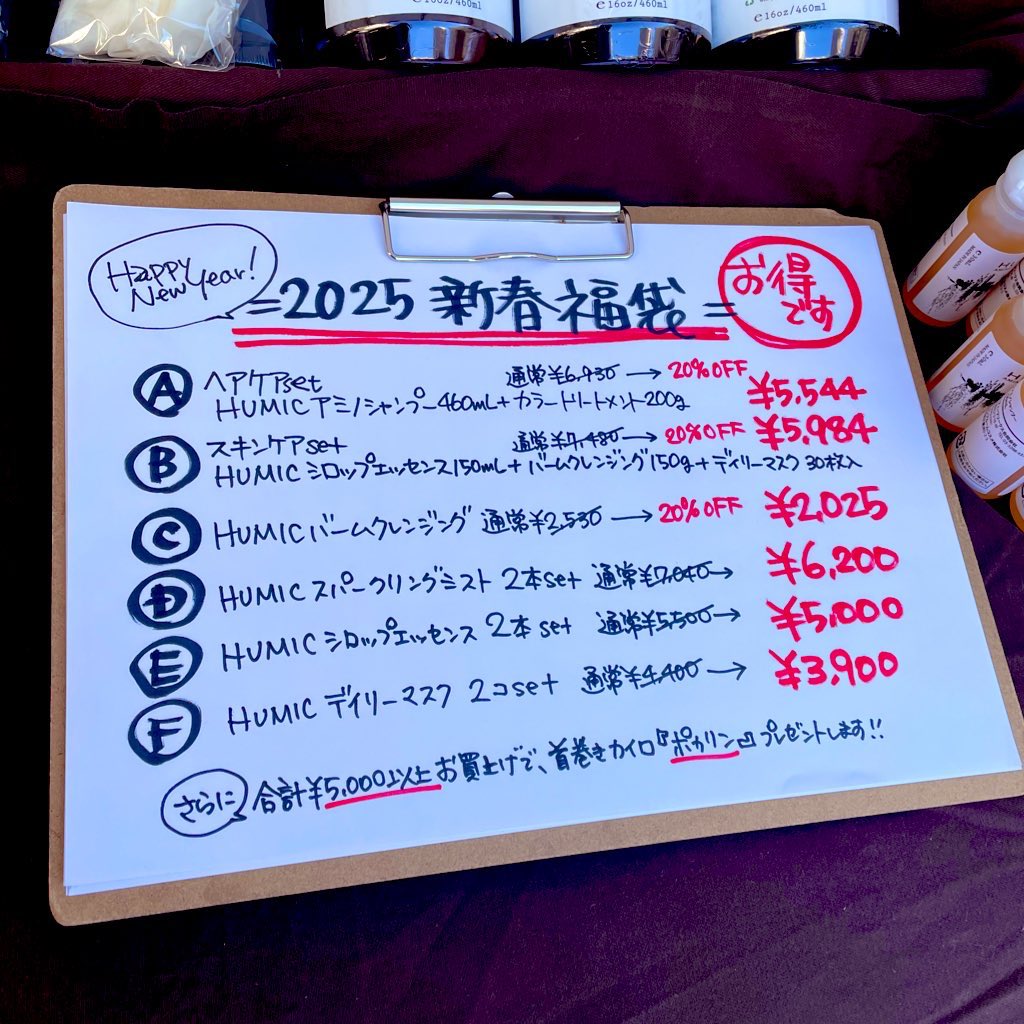 ℮16oz/460ml
℮16oz/460ml
℮16oz/460ml
HAPPY New Year!
=2025 新春福袋=
お得です
A ヘアケアset 通常¥6,930 → 20%OFF ¥5,544
HUMICアミノシャンプー460mL+カラートリートメント200g
B スキンケアset 通常¥7,480 → 20%OFF ¥5,984
HUMICシロップエッセンス150mL+バームクレンジング150g+デイリーマスク30枚入
C HUMICバームクレンジング 通常¥2,530 → 20%OFF ¥2,025
D HUMICスパークリングミスト 2本set 通常¥7,040→ ¥6,200
E HUMICシロップエッセンス 2本set 通常¥5,500→ ¥5,000
F HUMICデイリーマスク 2コset 通常¥4,400→ ¥3,900
さらに 合計¥5,000以上お買上げで、首巻きカイロ『ポカリン』プレゼントします!!